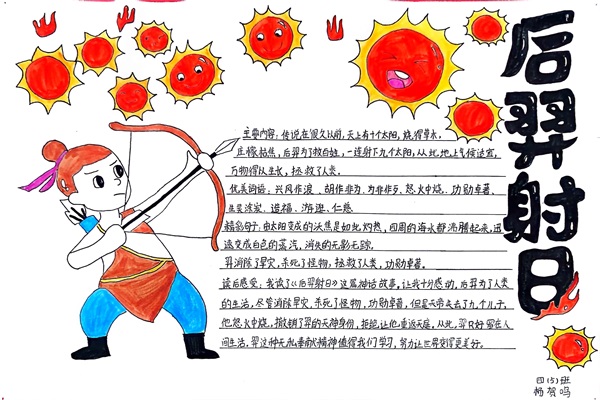 后羿射日
主要内容：传说在很久以前，天上有十个太阳，烧得草木，
庄稼枯焦，后羿为了救百姓，一连射下九个太阳，从此地上气候适宜，
万物得以生长，拯救了人类。
优美词语：兴风作浪、胡作非为、为非作歹、怒火中烧、功勋卓著、
造福、游逛、仁慈
精彩句子：由太阳变成的沃焦是如此灼热，四周的海水都沸腾起来，迅
速变成白色的蒸汽，消失的无影无踪。
羿消除了旱灾，杀死了怪物，拯救了人类，功勋卓著。
读后感受：我读了《后羿射日》这篇神话故事，让我十分感动，后羿为了人类
的生活，尽管消除旱灾，杀死了怪物，功勋卓著，但是天帝失去了九个儿子，
他怒火中烧，撤销了羿的天神身份，拒绝让他重返天庭，从此，羿只好留在人
间生活，羿这种无私奉献精神值得我们学习，努力让世界变得更美好。
四(5)班
杨贺鸣